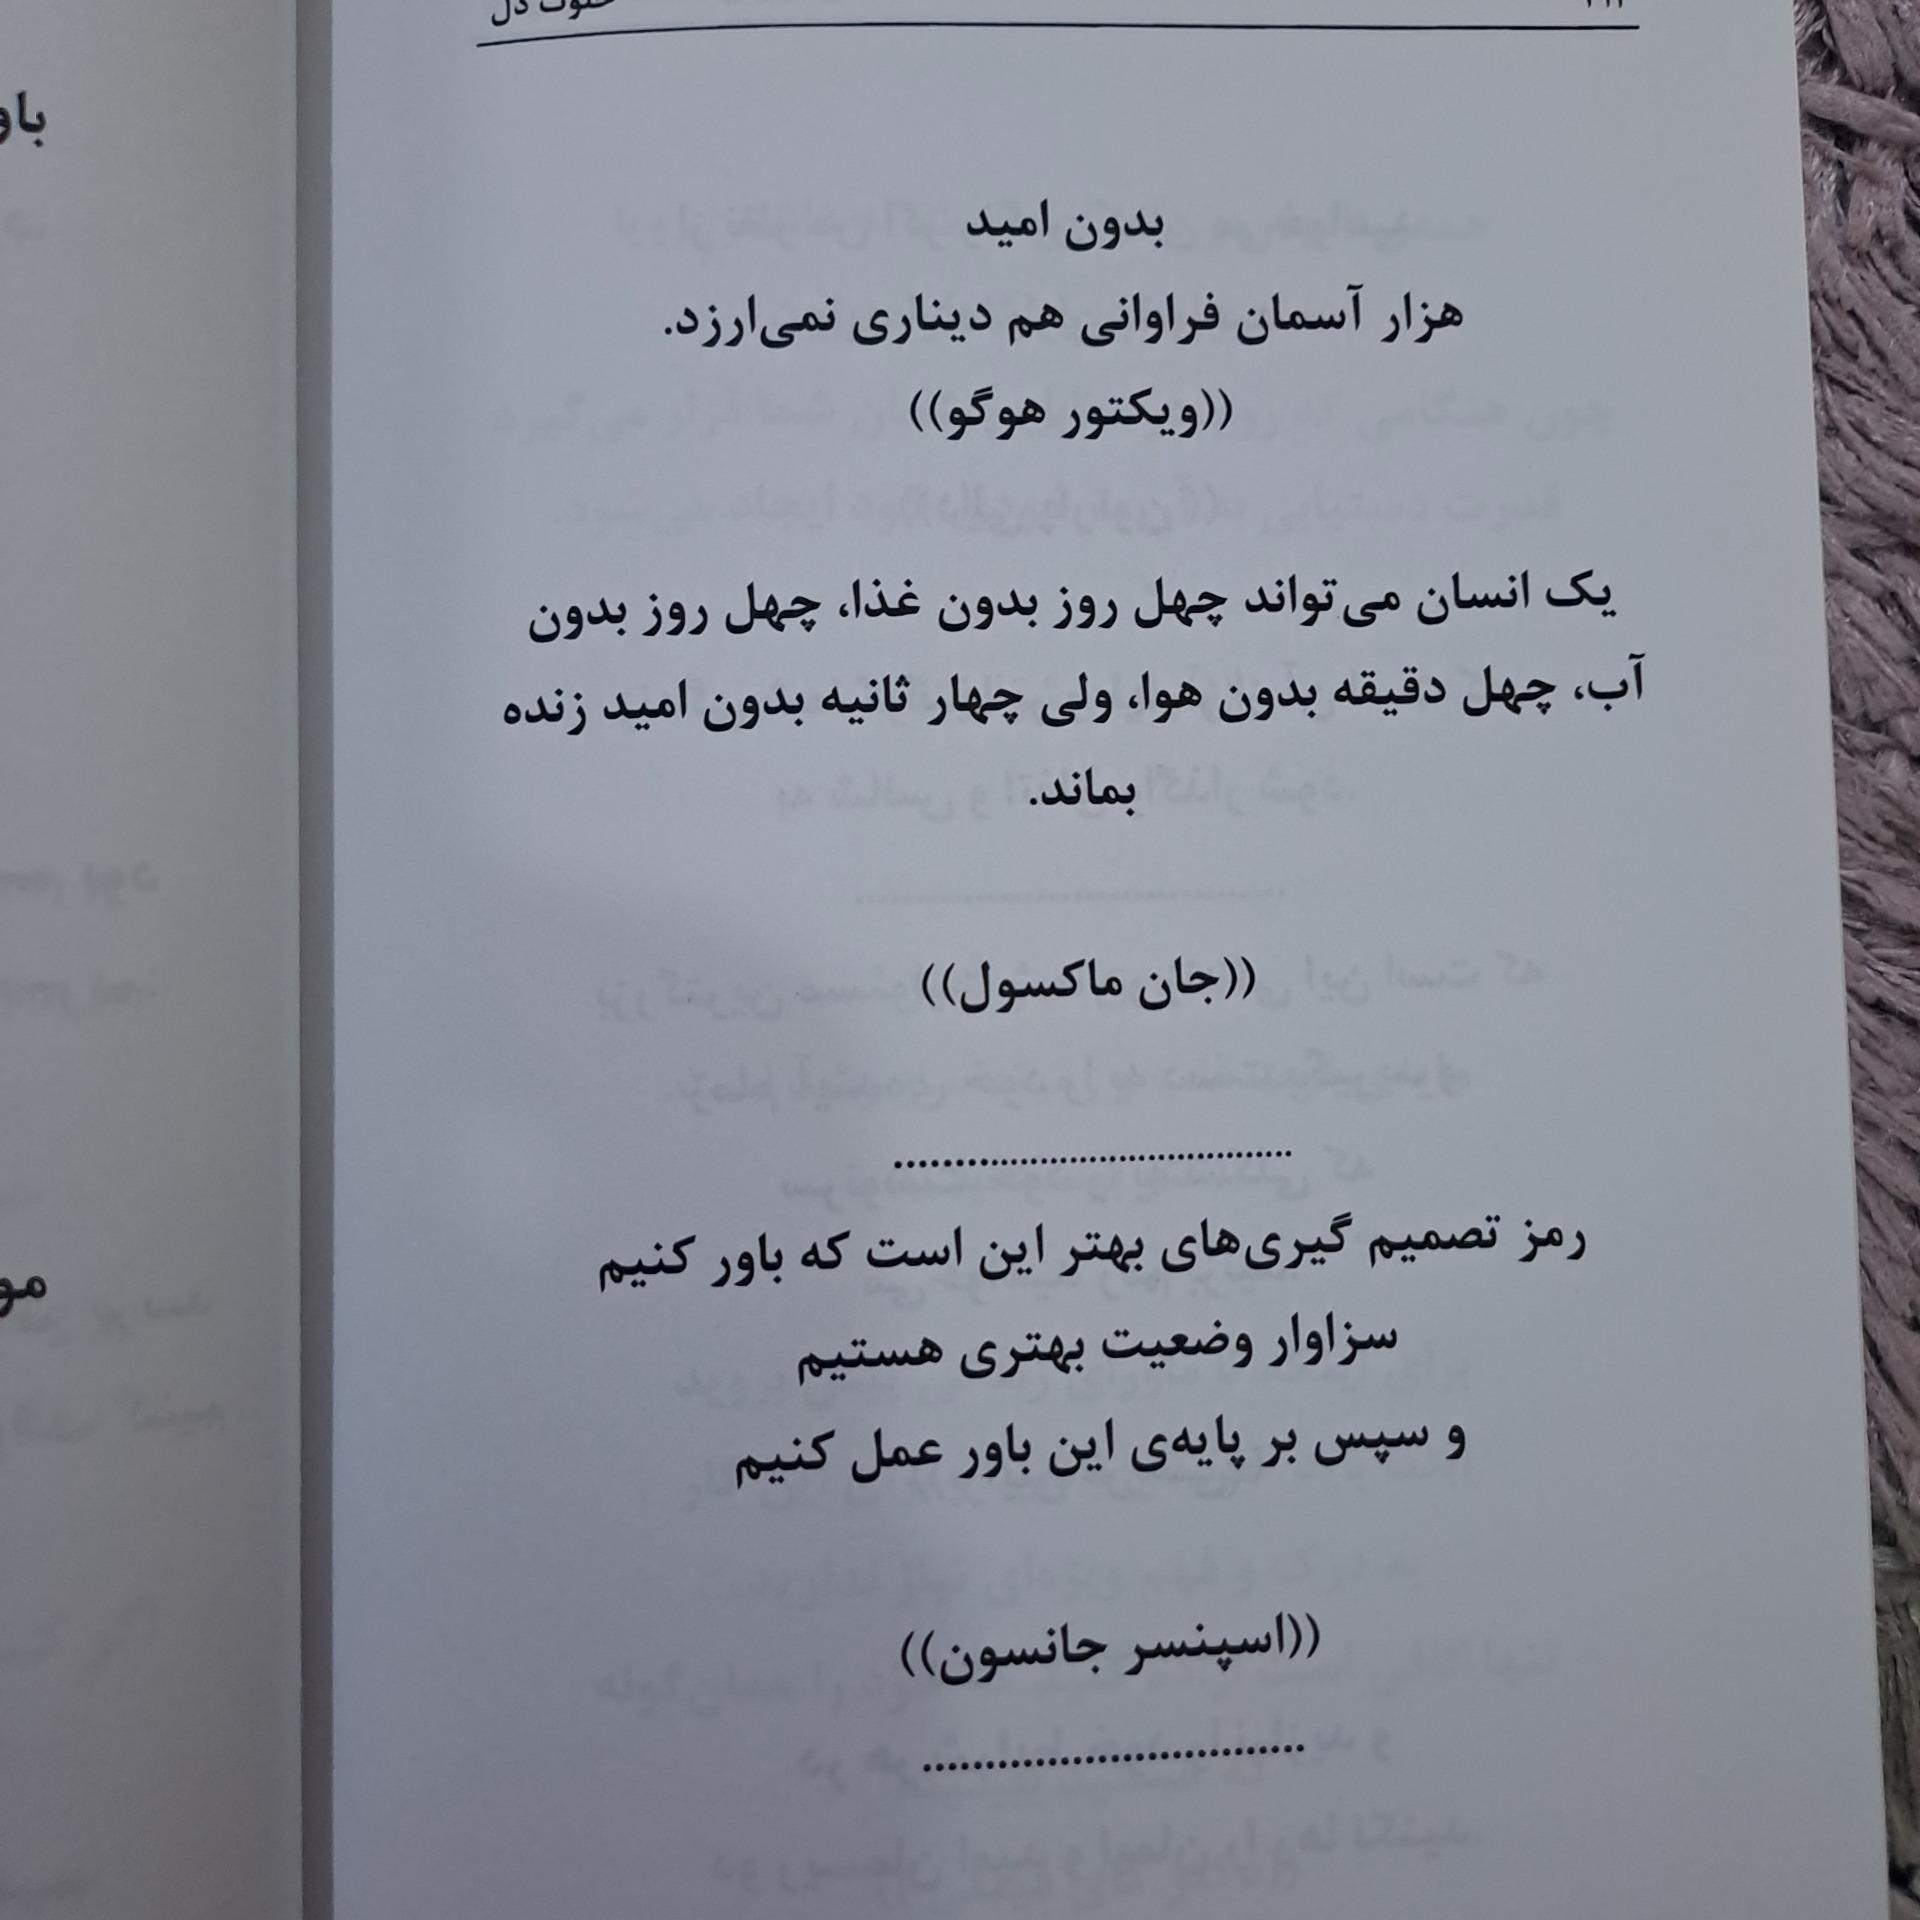 دل
بدون امید
هزار آسمان فراوانی هم دیناری نمی‌ارزد.
((ویکتور هوگو))
یک انسان می‌تواند چهل روز بدون غذا، چهل روز بدون
آب، چهل دقیقه بدون هوا، ولی چهار ثانیه بدون امید زنده
بماند.
((جان ماکسول))
........................................
رمز تصمیم گیری‌های بهتر این است که باور کنیم
سزاوار وضعیت بهتری هستیم
و سپس بر پایه‌ی این باور عمل کنیم
((اسپنسر جانسون))
........................................